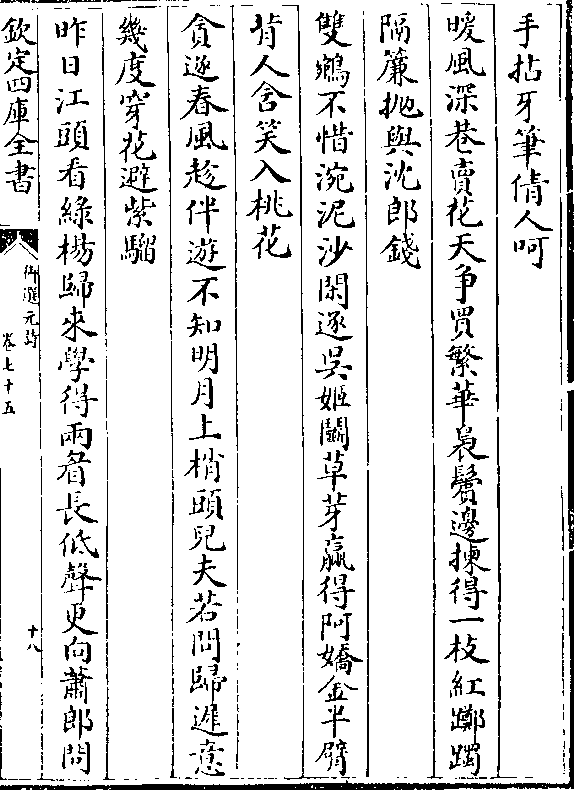 手拈牙筆倩人呵
暖風深巷賣花天爭買繁華裊鬢邊揀得一枝紅躑躅
隔簾抛與沈郎錢
雙鵷不惜涴泥沙閑逐吳姬鬬草芽贏得阿嬌金半臂
背人含笑入桃花
貪逐春風趂伴遊不知明月上梢頭兒夫若問歸遲意
幾度穿花避紫騮
昨日江頭看綠楊歸來學得兩眉長低聲更向蕭郎問
欽定四庫全書
御選元詩
卷七十五
十八